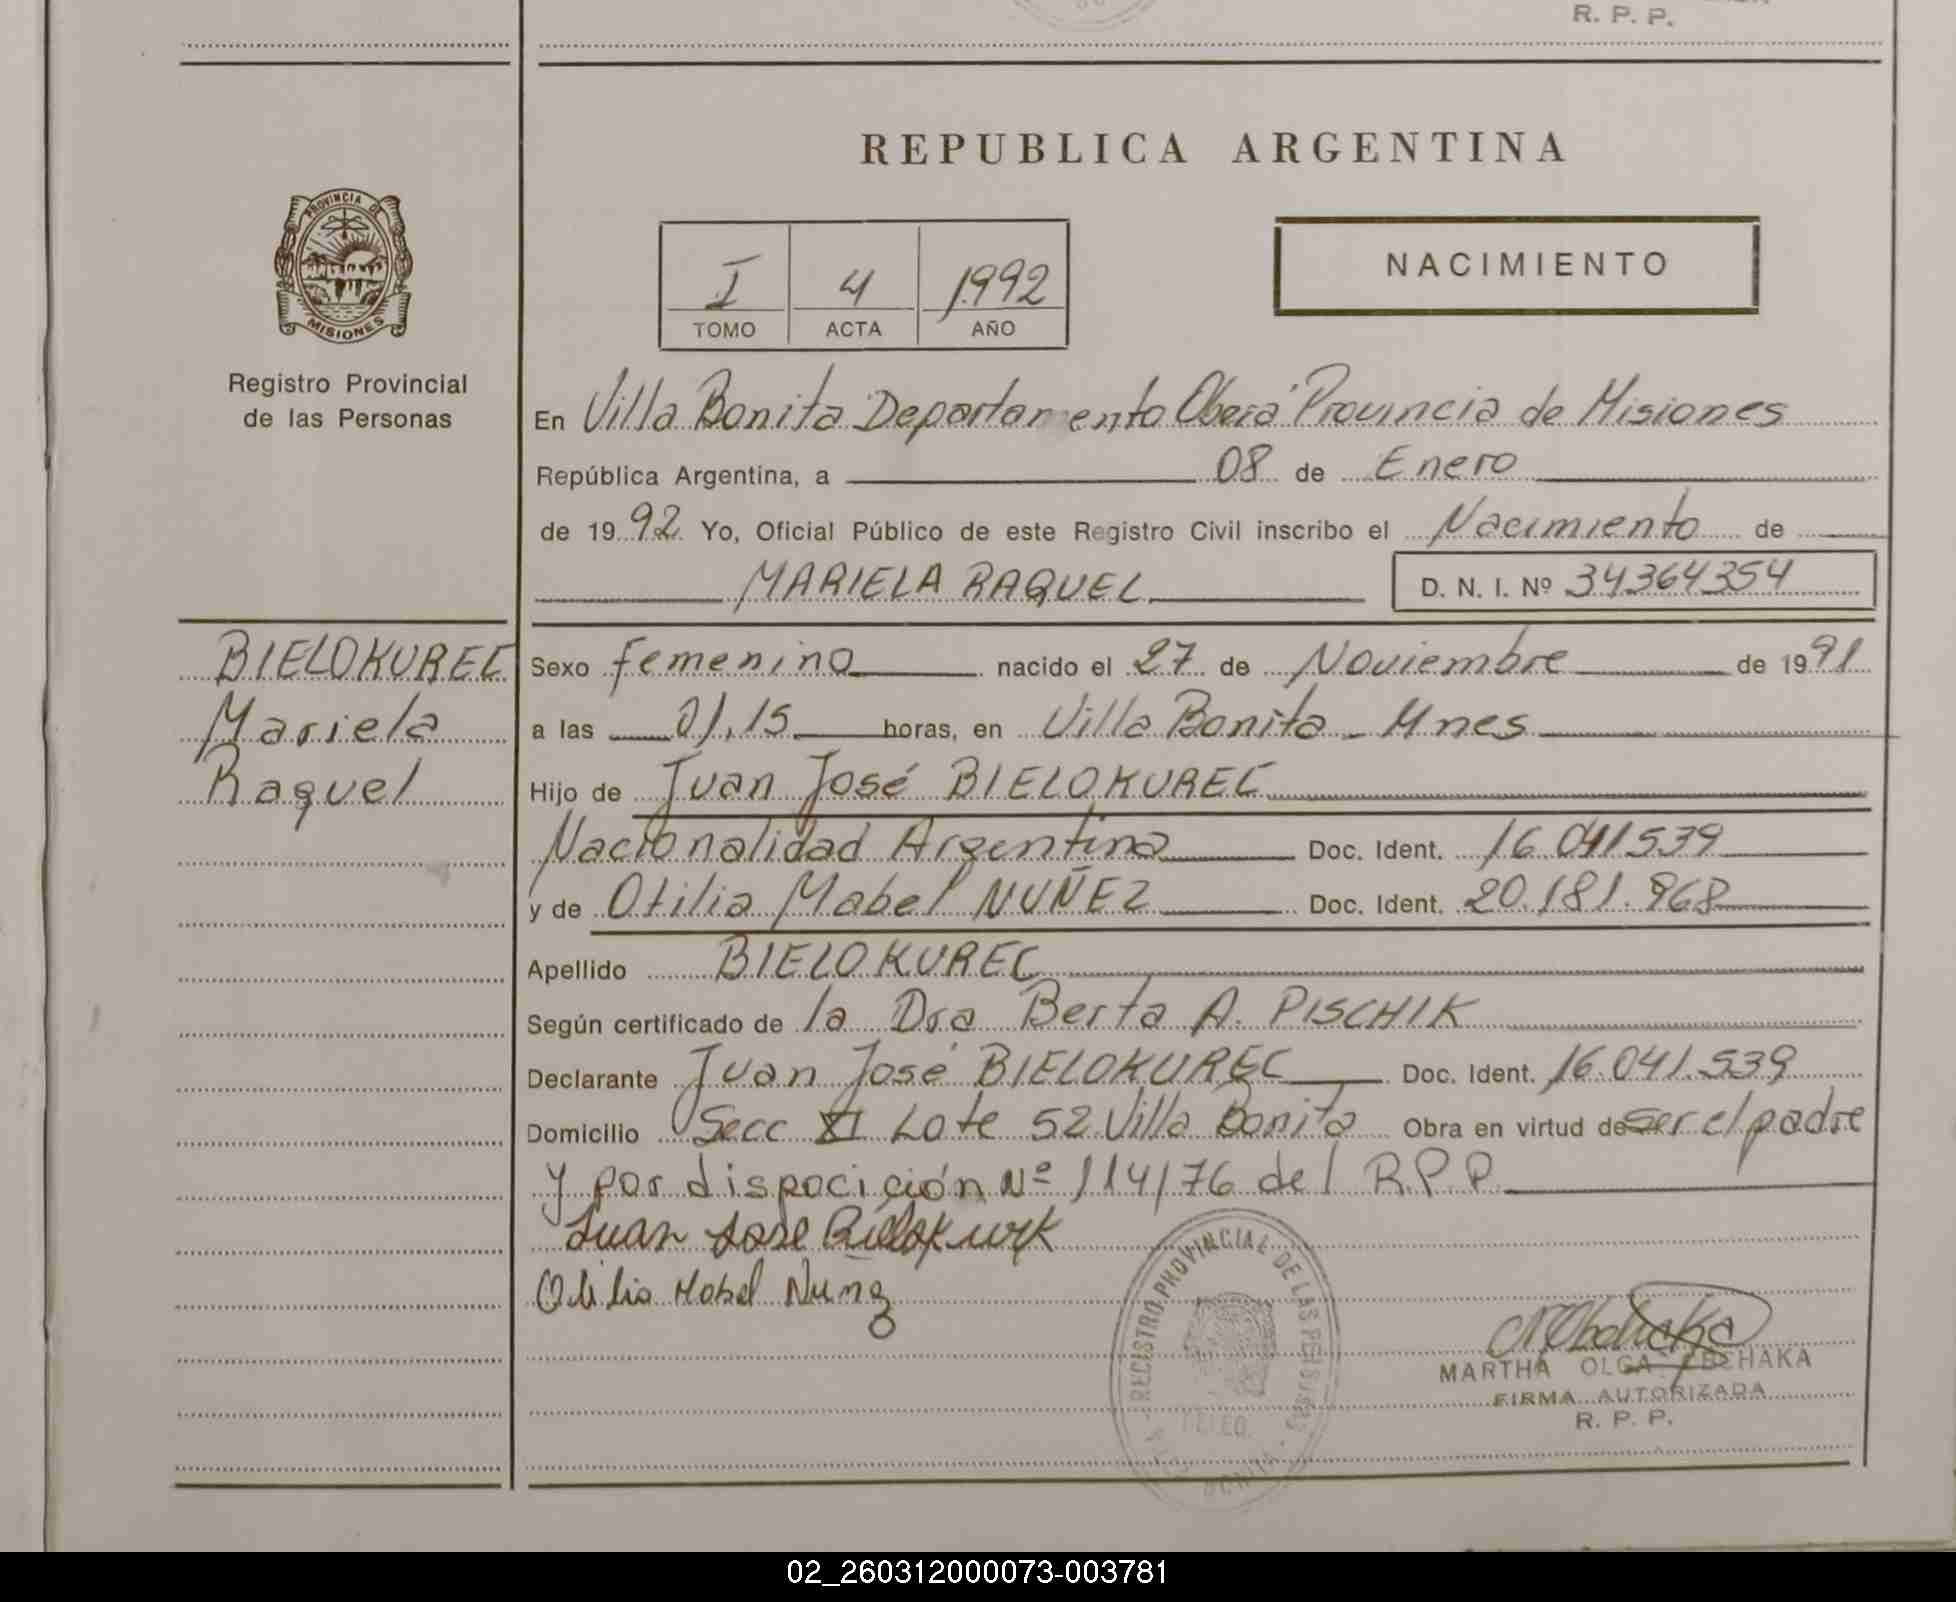 R. P. P.
REPUBLICA ARGENTINA
PROVINCIA DE
MISIONES
Registro Provincial
de las Personas
I 4 1992
TOMO ACTA AÑO
NACIMIENTO
En Villa Bonita Departamento Oberá Provincia de Misiones
República Argentina, a 08 de Enero
de 1992 Yo, Oficial Público de este Registro Civil inscribo el Nacimiento de
MARIELA RAQUEL D. N. I. Nº 34364354
BIELOKUREC
Mariela
Raquel
Sexo femenino nacido el 27 de Noviembre de 1991
a las 01,15 horas, en Villa Bonita - Mnes
Hijo de Juan José BIELOKUREC
Nacionalidad Argentina Doc. Ident. 16.041539
y de Otilia Mabel NUÑEZ Doc. Ident. 20.181.868
Apellido BIELOKUREC
Según certificado de la Dra Berta A. PISCHIK
Declarante Juan José BIELOKUREC Doc. Ident. 16.041.539
Domicilio Secc XI Lote 52 Villa Bonita Obra en virtud de ser el padre
y por dispocición Nº 114/76 del R.P.P.
Juan Jose
Otilia Mabel Nunez
REGISTRO PROVINCIAL DE LAS PERSONAS
BONITA
MARTHA OLGA
FIRMA AUTORIZADA
R. P. P.
02_260312000073-003781